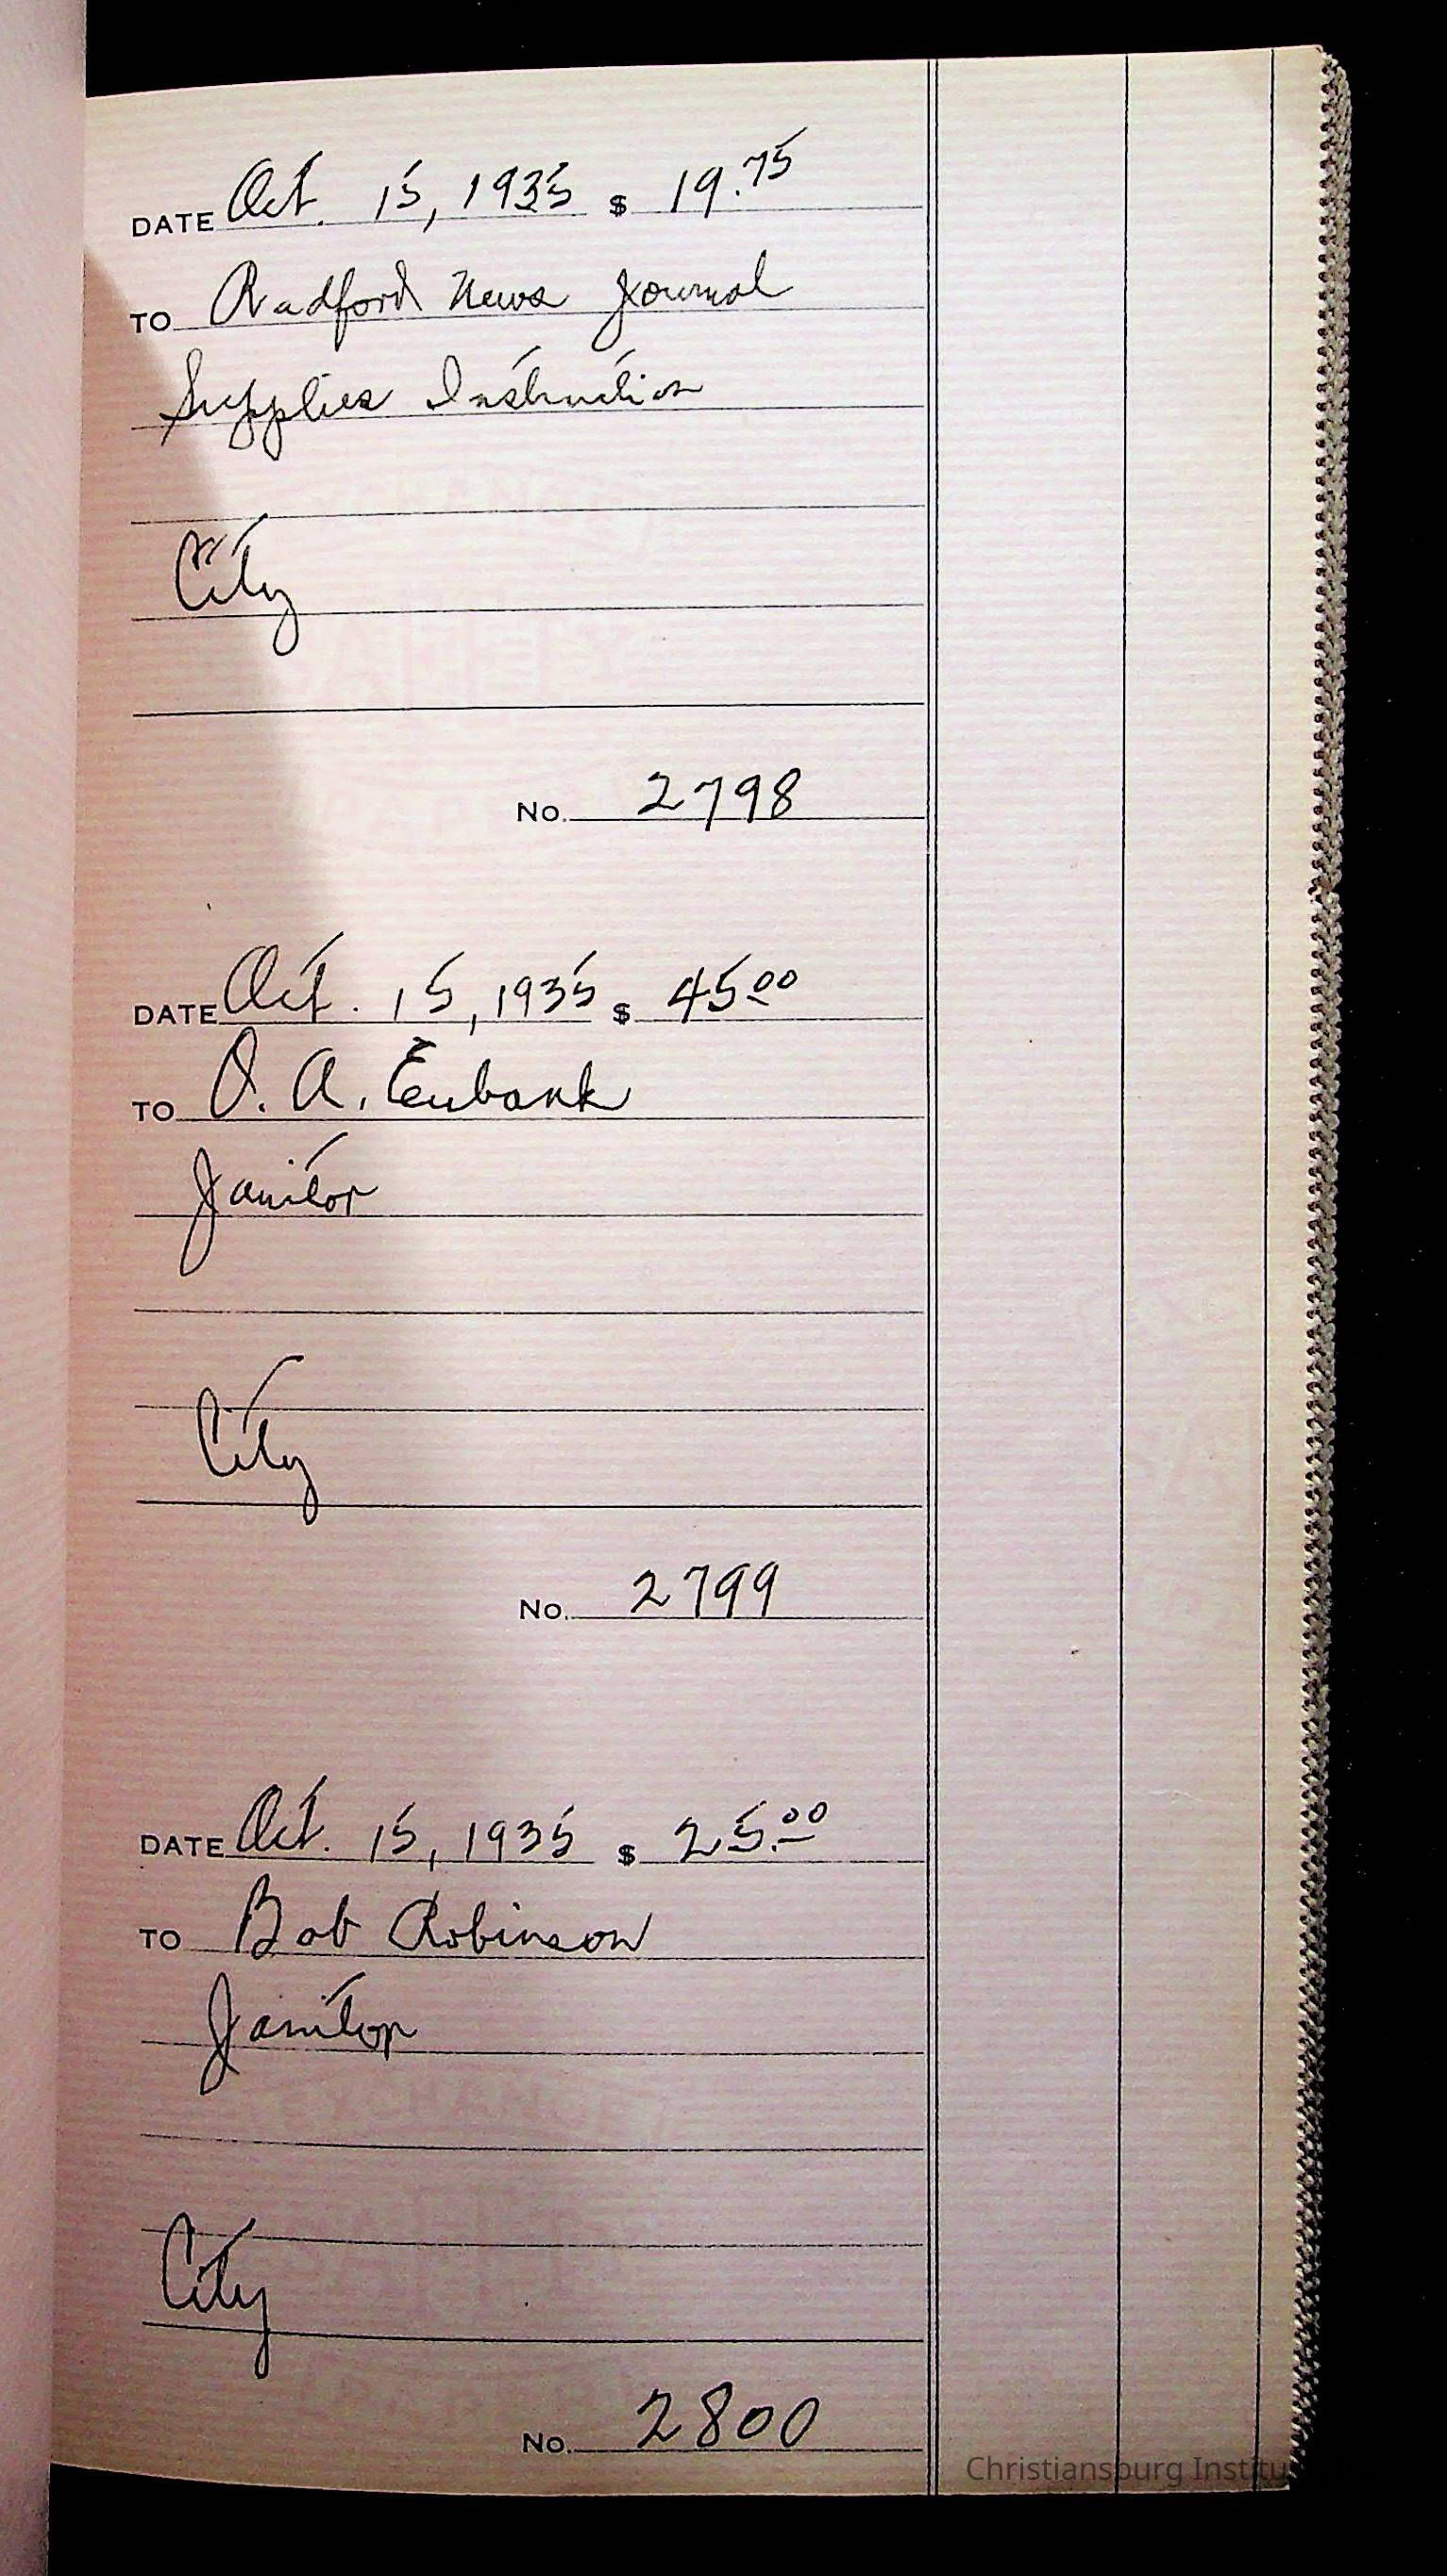 DATE Oct. 15, 1935 $ 19.75
TO Radford News Journal
Supplies Instruction
City
No. 2798
DATE Oct. 15, 1935 $ 45.00
TO O. A. Eubank
Janitor
City
No. 2799
DATE Oct. 15, 1935 $ 25.00
TO Bob Robinson
Janitor
City
No. 2800
Christiansburg Institu